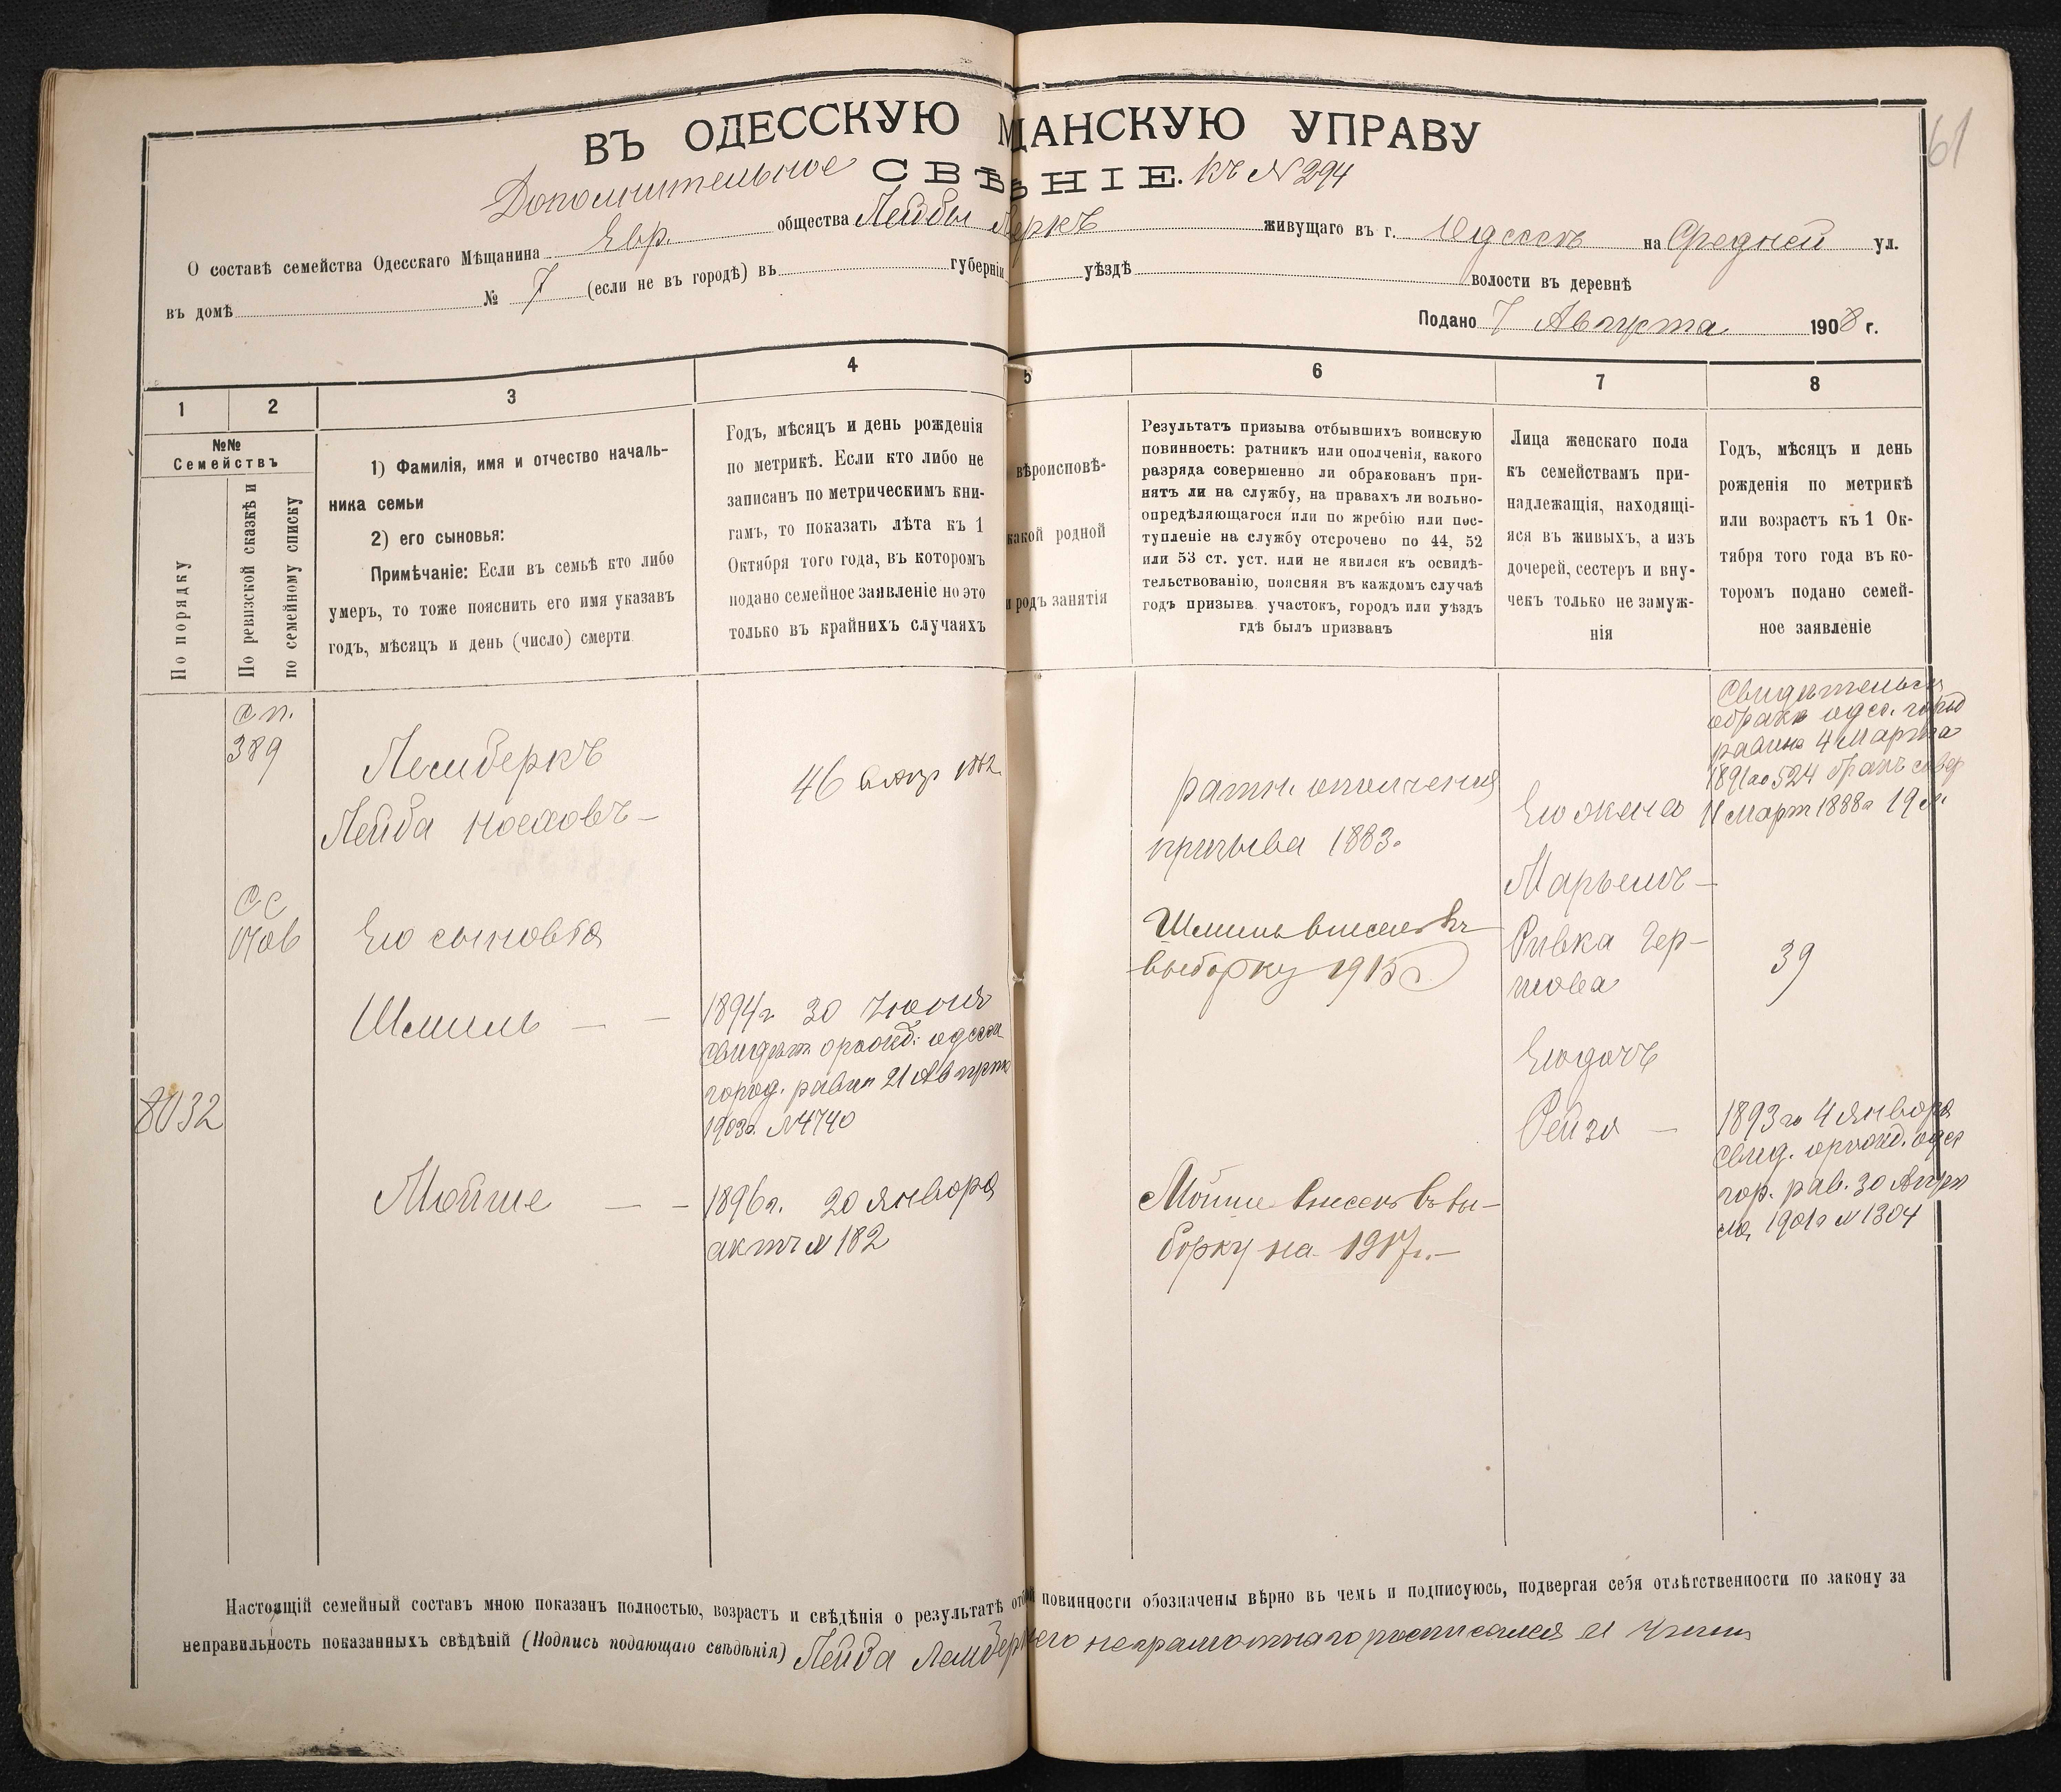 61
ВЪ ОДЕССКУЮ МЩАНСКУЮ УПРАВУ
Дополнительное СВѢ НІЕ. къ №294
О составѣ семейства Одесскаго Мѣщанина Евр. общества Лейбы живущаго въ г. Одессѣ на Средней ул.
въ домѣ № 7 (если не въ городѣ) въ губерніи уѣздѣ волости въ деревнѣ
Подано 7 Августа 1908 г.
1 2 3 4 5 6 7 8
№№
Семействъ
По порядку
По ревизской сказкѣ и
по семейному списку
1) Фамилія, имя и отчество началь-
ника семьи
2) его сыновья:
Примѣчаніе: Если въ семьѣ кто либо
умеръ, то тоже пояснить его имя указавъ
годъ, мѣсяцъ и день (число) смерти
Годъ, мѣсяцъ и день рожденія
по метрикѣ. Если кто либо не
записанъ по метрическимъ кни-
гамъ, то показать лѣта къ 1
Октября того года, въ которомъ
подано семейное заявленіе но это
только въ крайнихъ случаяхъ
вѣроисповѣ-
какой родной
и родъ занятія
Результатъ призыва отбывшихъ воинскую
повинность: ратникъ или ополченія, какого
разряда совершенно ли обракованъ при-
нятъ ли на службу, на правахъ ли вольно-
опредѣляющагося или по жребію или пос-
тупленіе на службу отсрочено по 44, 52
или 53 ст. уст. или не явился къ освидѣ-
тельствованію, поясняя въ каждомъ случаѣ
годъ призыва участокъ, городъ или уѣздъ
гдѣ былъ призванъ
Лица женскаго пола
къ семействамъ при-
надлежащія, находящі-
яся въ живыхъ, а изъ
дочерей, сестеръ и вну-
чекъ только не замуж-
нія
Годъ, мѣсяцъ и день
рожденія по метрикѣ
или возрастъ къ 1 Ок-
тября того года въ ко-
торомъ подано семей-
ное заявленіе
Сп.
389
СС
8032
Лемберкъ
Лейба Носховъ —
Его сыновья
Шмиль — —
Мойше — —
46 1862
1894 г 30 Іюня
свидѣт. одесск
город. равин 21 Августа
1903г. №4740
1896 г. 20 января
актъ № 182
ратн. ополченія
призыва 1883.
Шмиль внесенъ въ
выборку 1915 г
Мойше внесенъ въ вы-
борку на 1917 г. —
Его жена
Марьемъ —
Ривка Гер-
шова
Его дочь
Рейзя —
Свидѣтельст
о бракѣ одес. город
равина 4 Марта
1891 № 524 бракъ совер
11 Март 1888 г 19 л.
39
1893 г 4 января
свид. одес
гор. рав. 30 Апрѣ
ля 1901 г № 1304
Настоящій семейный составъ мною показанъ полностью, возрастъ и свѣдѣнія о результатѣ повинности обозначены вѣрно въ чемъ и подписуюсь, подвергая себя отвѣтственности по закону за
неправильность показанныхъ свѣдѣній (Подпись подающаго свѣдѣнія) Лейба неграмотнаго росписался И